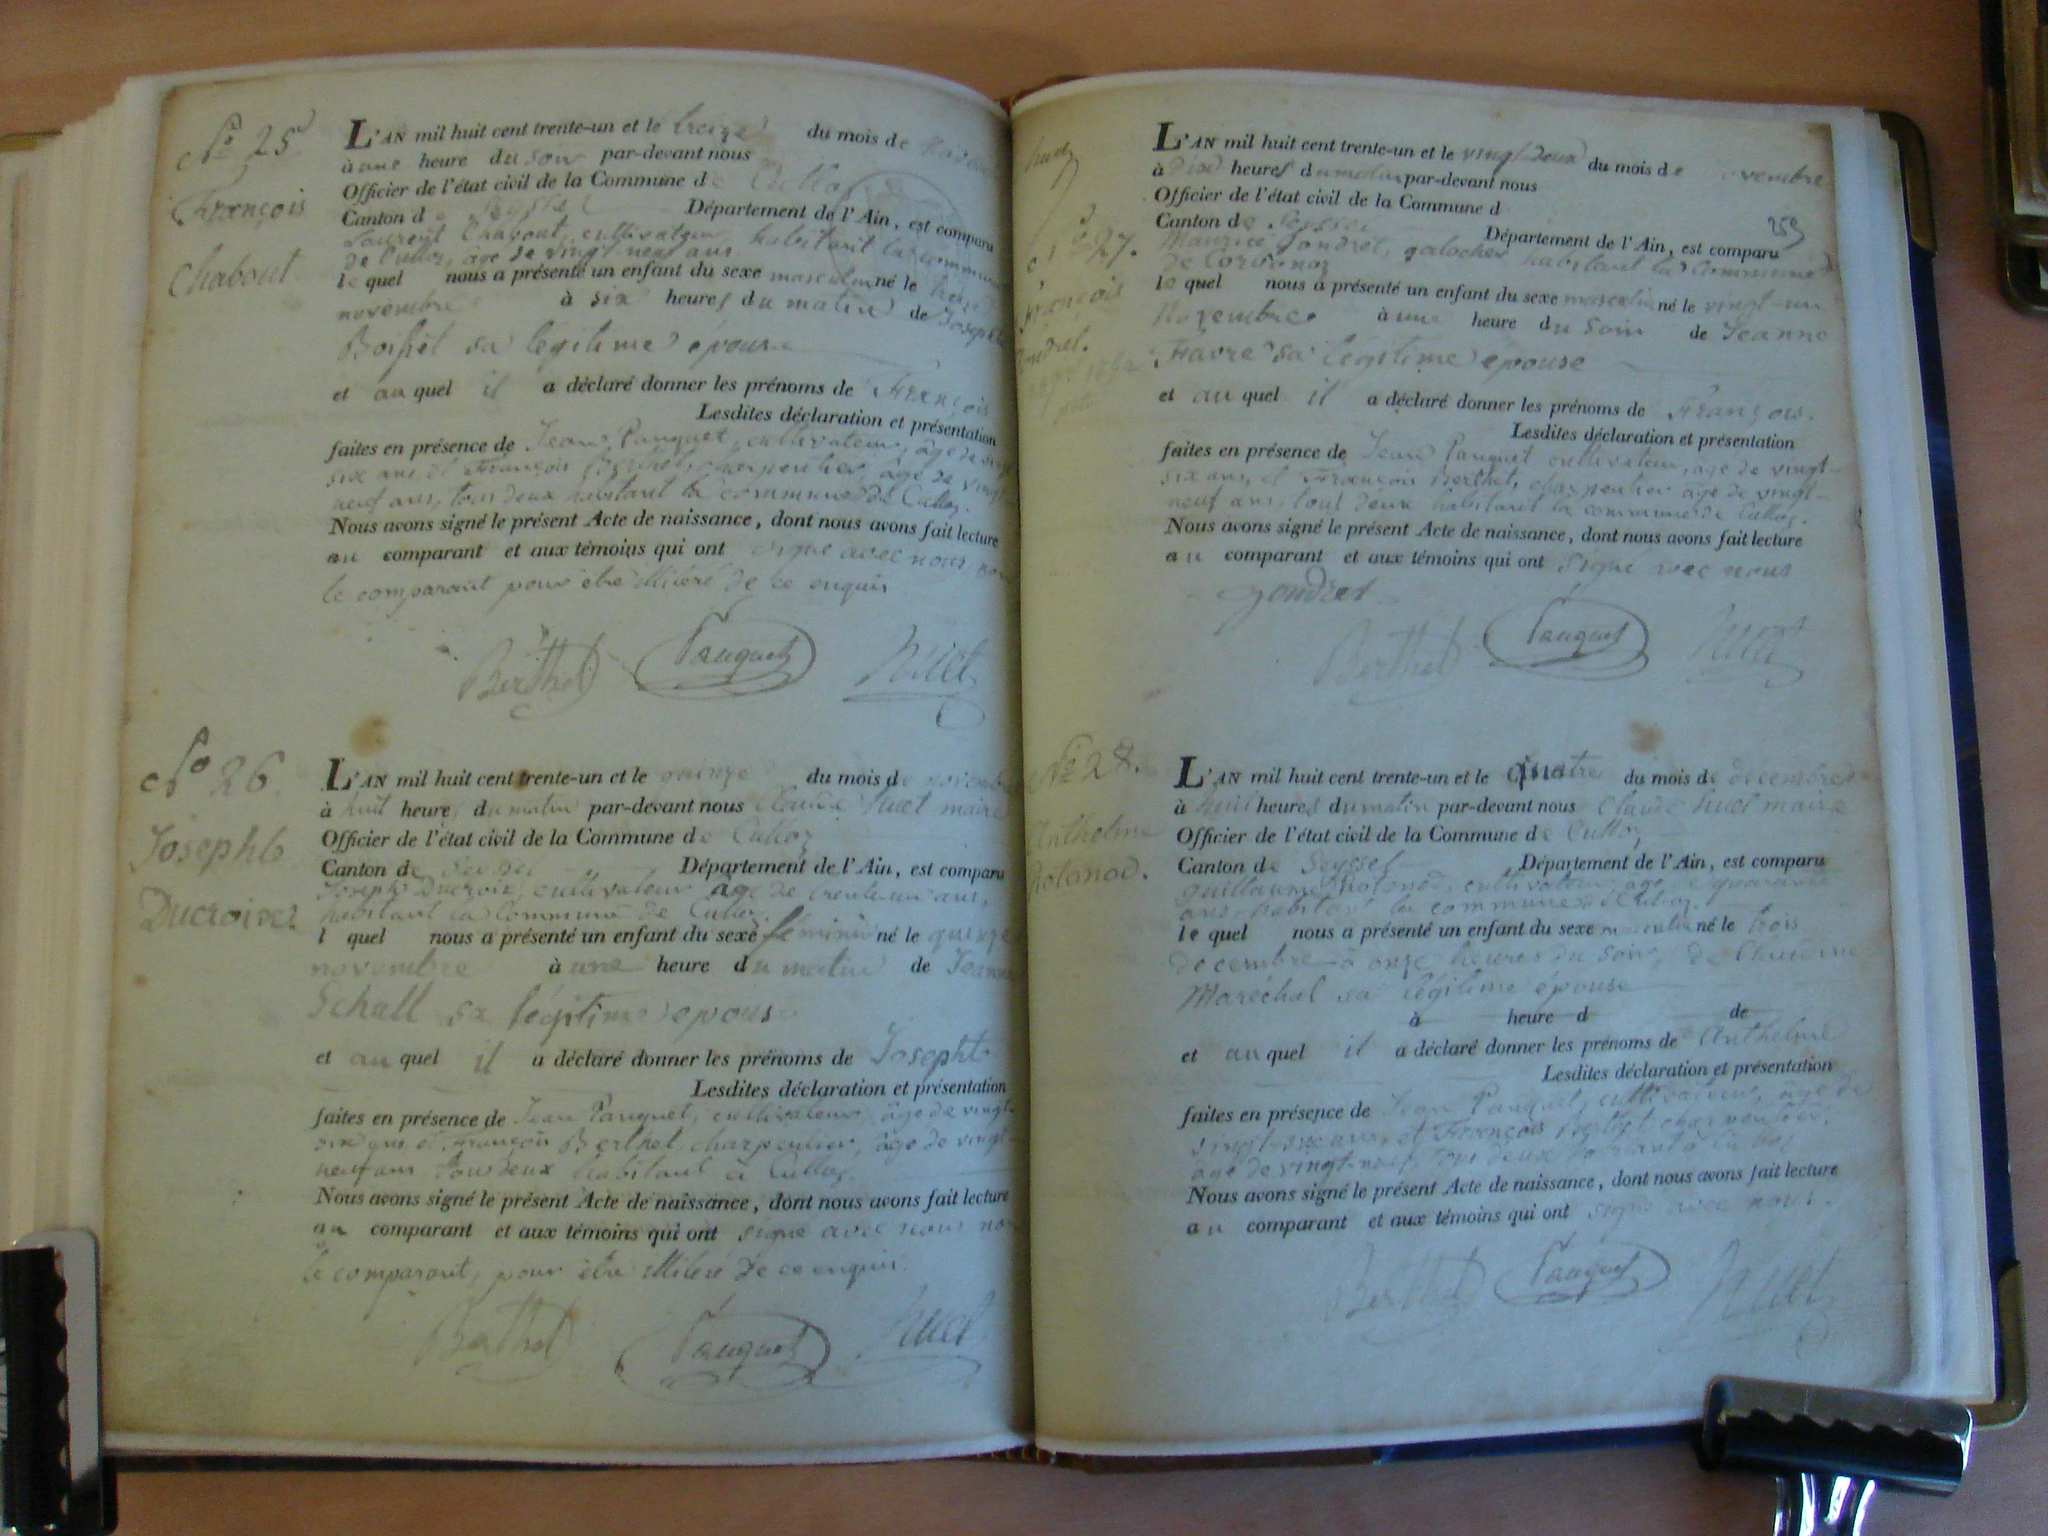 No 25
François
Chabout
L'AN mil huit cent trente-un et le treize du mois de
à une heure du soir par-devant nous
Officier de l'état civil de la Commune de Culloz
Canton de Département de l'Ain, est comparu
Laurent Chabout, cultivateur, habitant la commune
de Culloz, âgé de vingt neuf ans
le quel nous a présenté un enfant du sexe masculin né le treize
novembre à six heures du matin de Josephte
sa légitime épouse
et au quel il a déclaré donner les prénoms de François
Lesdites déclaration et présentation
faites en présence de Jean Pauquet, cultivateur, âgé de vingt
six ans et François Berthet, charpentier, âgé de vingt-
neuf ans, tous deux habitant la commune de Culloz.
Nous avons signé le présent Acte de naissance, dont nous avons fait lecture
au comparant et aux témoins qui ont signé avec nous non
le comparant pour être illiteré de ce enquis
Berthet Pauquet Huet
No 26
Josephte
Ducroix
L'AN mil huit cent trente-un et le quinze du mois de novembre
à huit heures du matin par-devant nous Claude Huet maire
Officier de l'état civil de la Commune de Culloz
Canton de Département de l'Ain, est comparu
Joseph Ducroix, cultivateur âgé de trente un ans,
habitant la Commune de Culloz.
l quel nous a présenté un enfant du sexe féminin né le quinze
novembre à une heure du matin de Jeanne
Schall sa légitime épouse
et au quel il a déclaré donner les prénoms de Josephte
Lesdites déclaration et présentation
faites en présence de Jean Pauquet, cultivateur, âgé de vingt-
six ans et François Berthet charpentier, âgé de vingt-
neuf ans tous deux habitant à Culloz
Nous avons signé le présent Acte de naissance, dont nous avons fait lecture
au comparant et aux témoins qui ont signé avec nous non
le comparant, pour être illiteré de ce enquis.
Berthet Pauquet Huet
27.
François
L'AN mil huit cent trente-un et le vingt-deux du mois de novembre
à dix heures du matin par-devant nous
Officier de l'état civil de la Commune d
Canton de Seyssel Département de l'Ain, est comparu
259
Maurice Gondret, galocher habitant la Commune
de Corbonoz
le quel nous a présenté un enfant du sexe masculin né le vingt-un
Novembre à une heure du soir de Jeanne
Favre sa légitime épouse
et au quel il a déclaré donner les prénoms de François.
Lesdites déclaration et présentation
faites en présence de Jean Pauquet cultivateur, âgé de vingt-
six ans, et François Berthet, charpentier âgé de vingt-
neuf ans, tout deux habitant la commune de Culloz.
Nous avons signé le présent Acte de naissance, dont nous avons fait lecture
au comparant et aux témoins qui ont signé avec nous
gondret
Berthet Pauquet Huet
No 28.
Anthelme
Rolonod.
L'AN mil huit cent trente-un et le Quatre du mois de decembre
à huit heures du matin par-devant nous Claude huet maire
Officier de l'état civil de la Commune de Culloz
Canton de Seyssel Département de l'Ain, est comparu
guillaume Rolonod, cultivateur, âgé de quarante
ans habitant la commune de Culloz.
le quel nous a présenté un enfant du sexe masculin né le trois
decembre à onze heures du soir, de Claudine
Maréchal sa légitime épouse
à heure d de
et au quel il a déclaré donner les prénoms de Anthelme
Lesdites déclaration et présentation
faites en présence de Jean Pauquet, cultivateur, âgé de
vingt-six ans, et François Berthet charpentier,
âgé de vingt-neuf, tous deux habitant à Culloz
Nous avons signé le présent Acte de naissance, dont nous avons fait lecture
au comparant et aux témoins qui ont signé avec nous.
Berthet Pauquet Huet